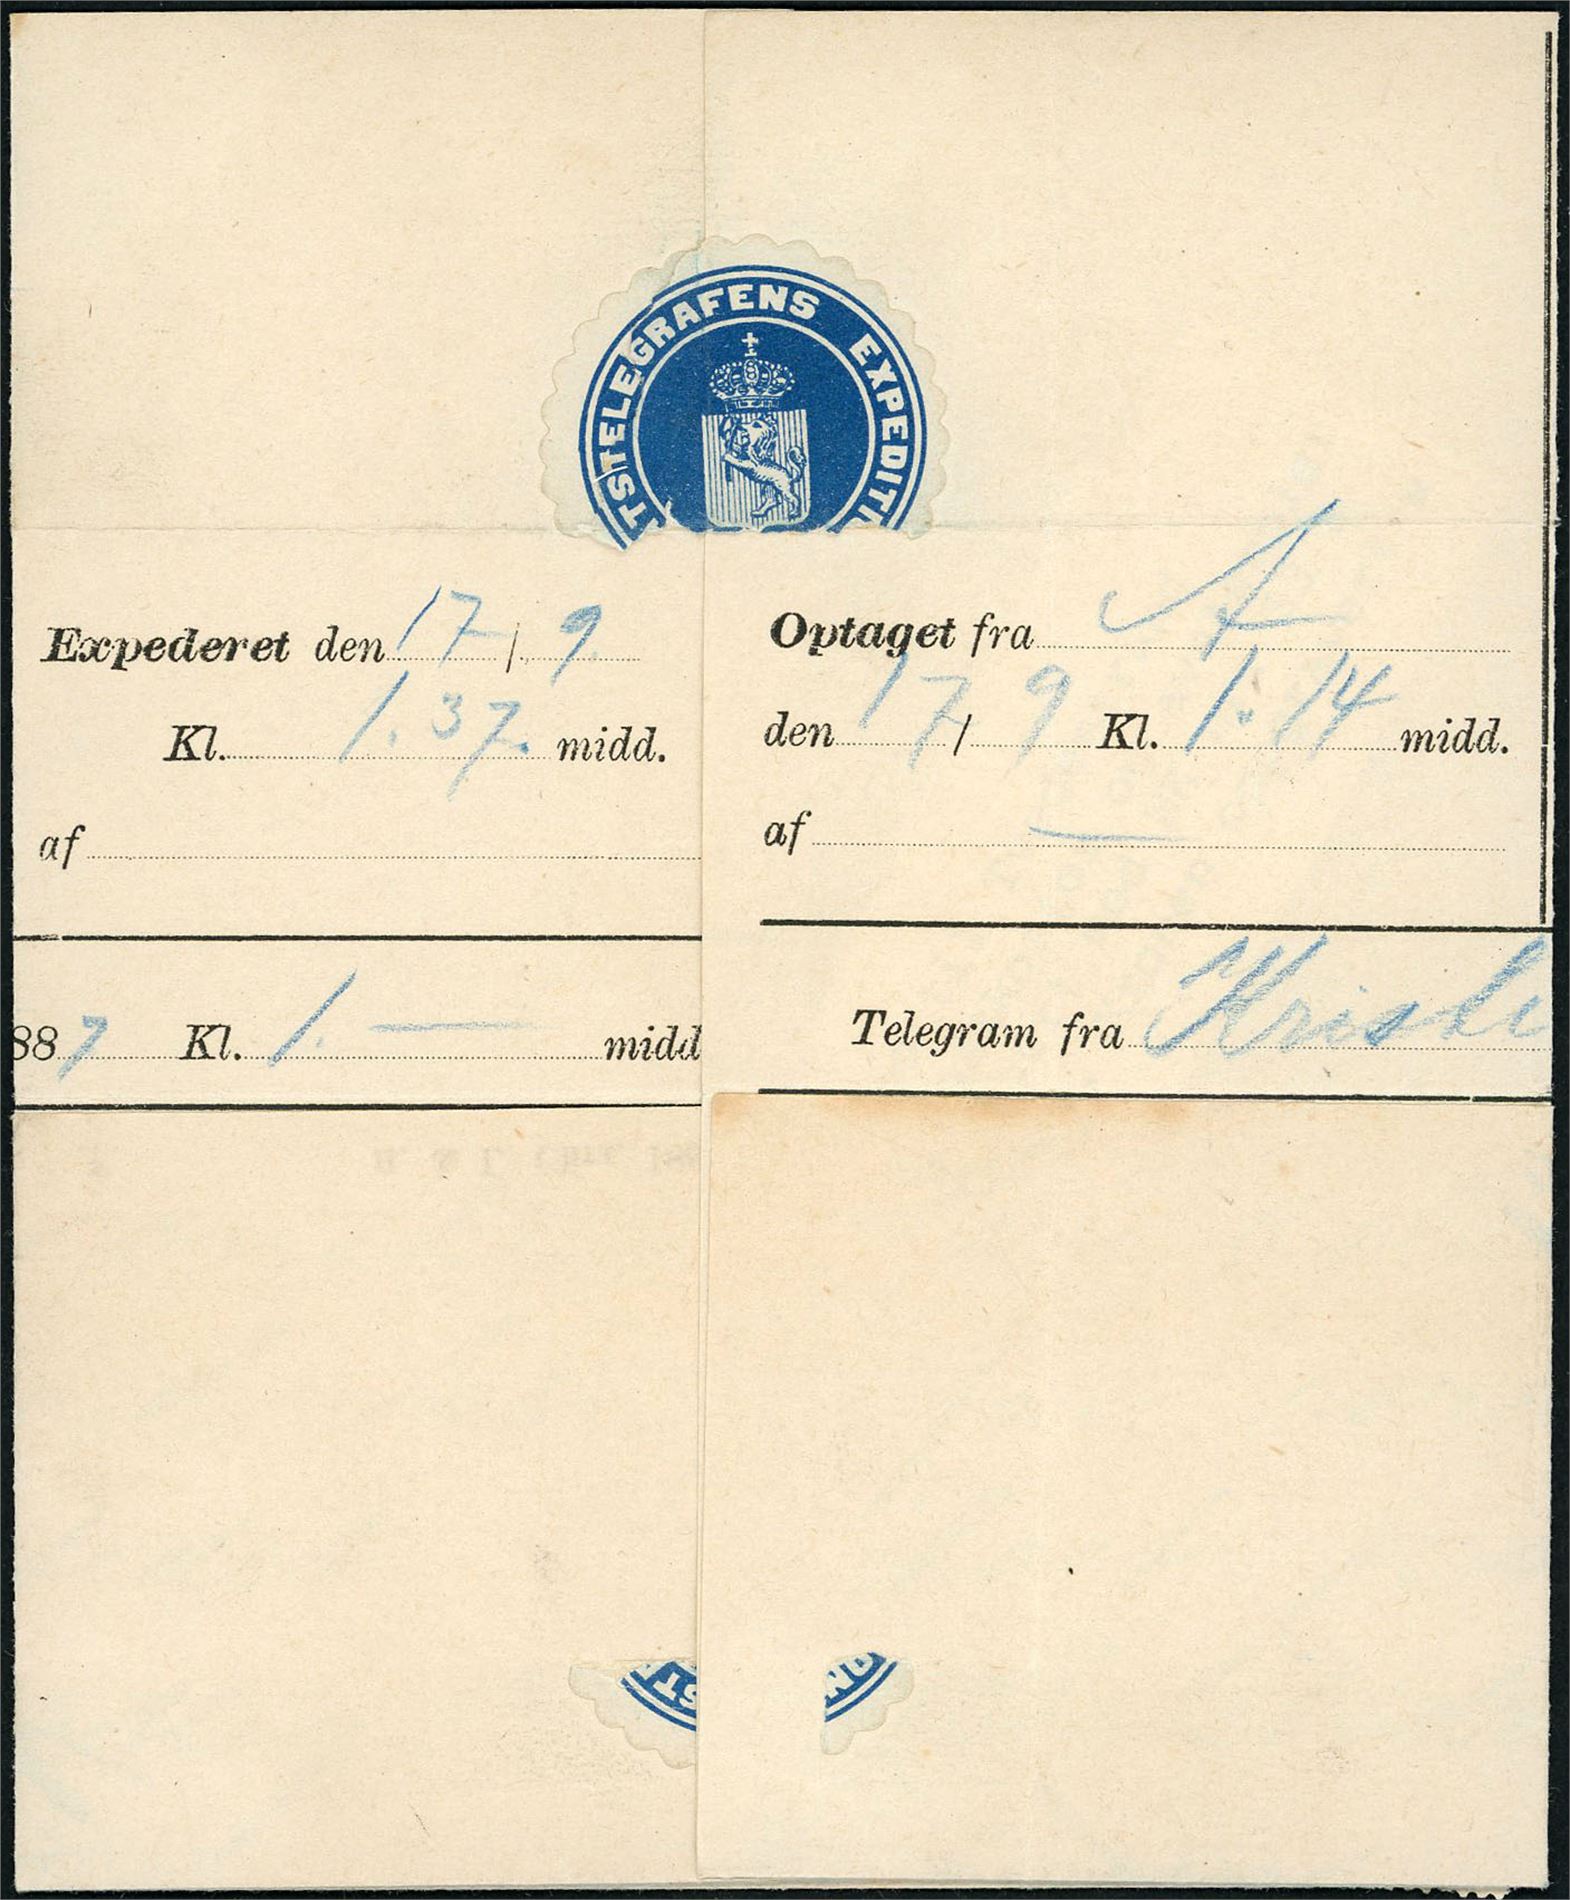 TSTELEGRAFENS EXPEDITI
Expederet den 17/9
Kl. 1.37. midd.
af
887 Kl. 1. — midd
Optaget fra A
den 17/9 Kl. 1.14 midd.
af —
Telegram fra Kristi
ST
ON